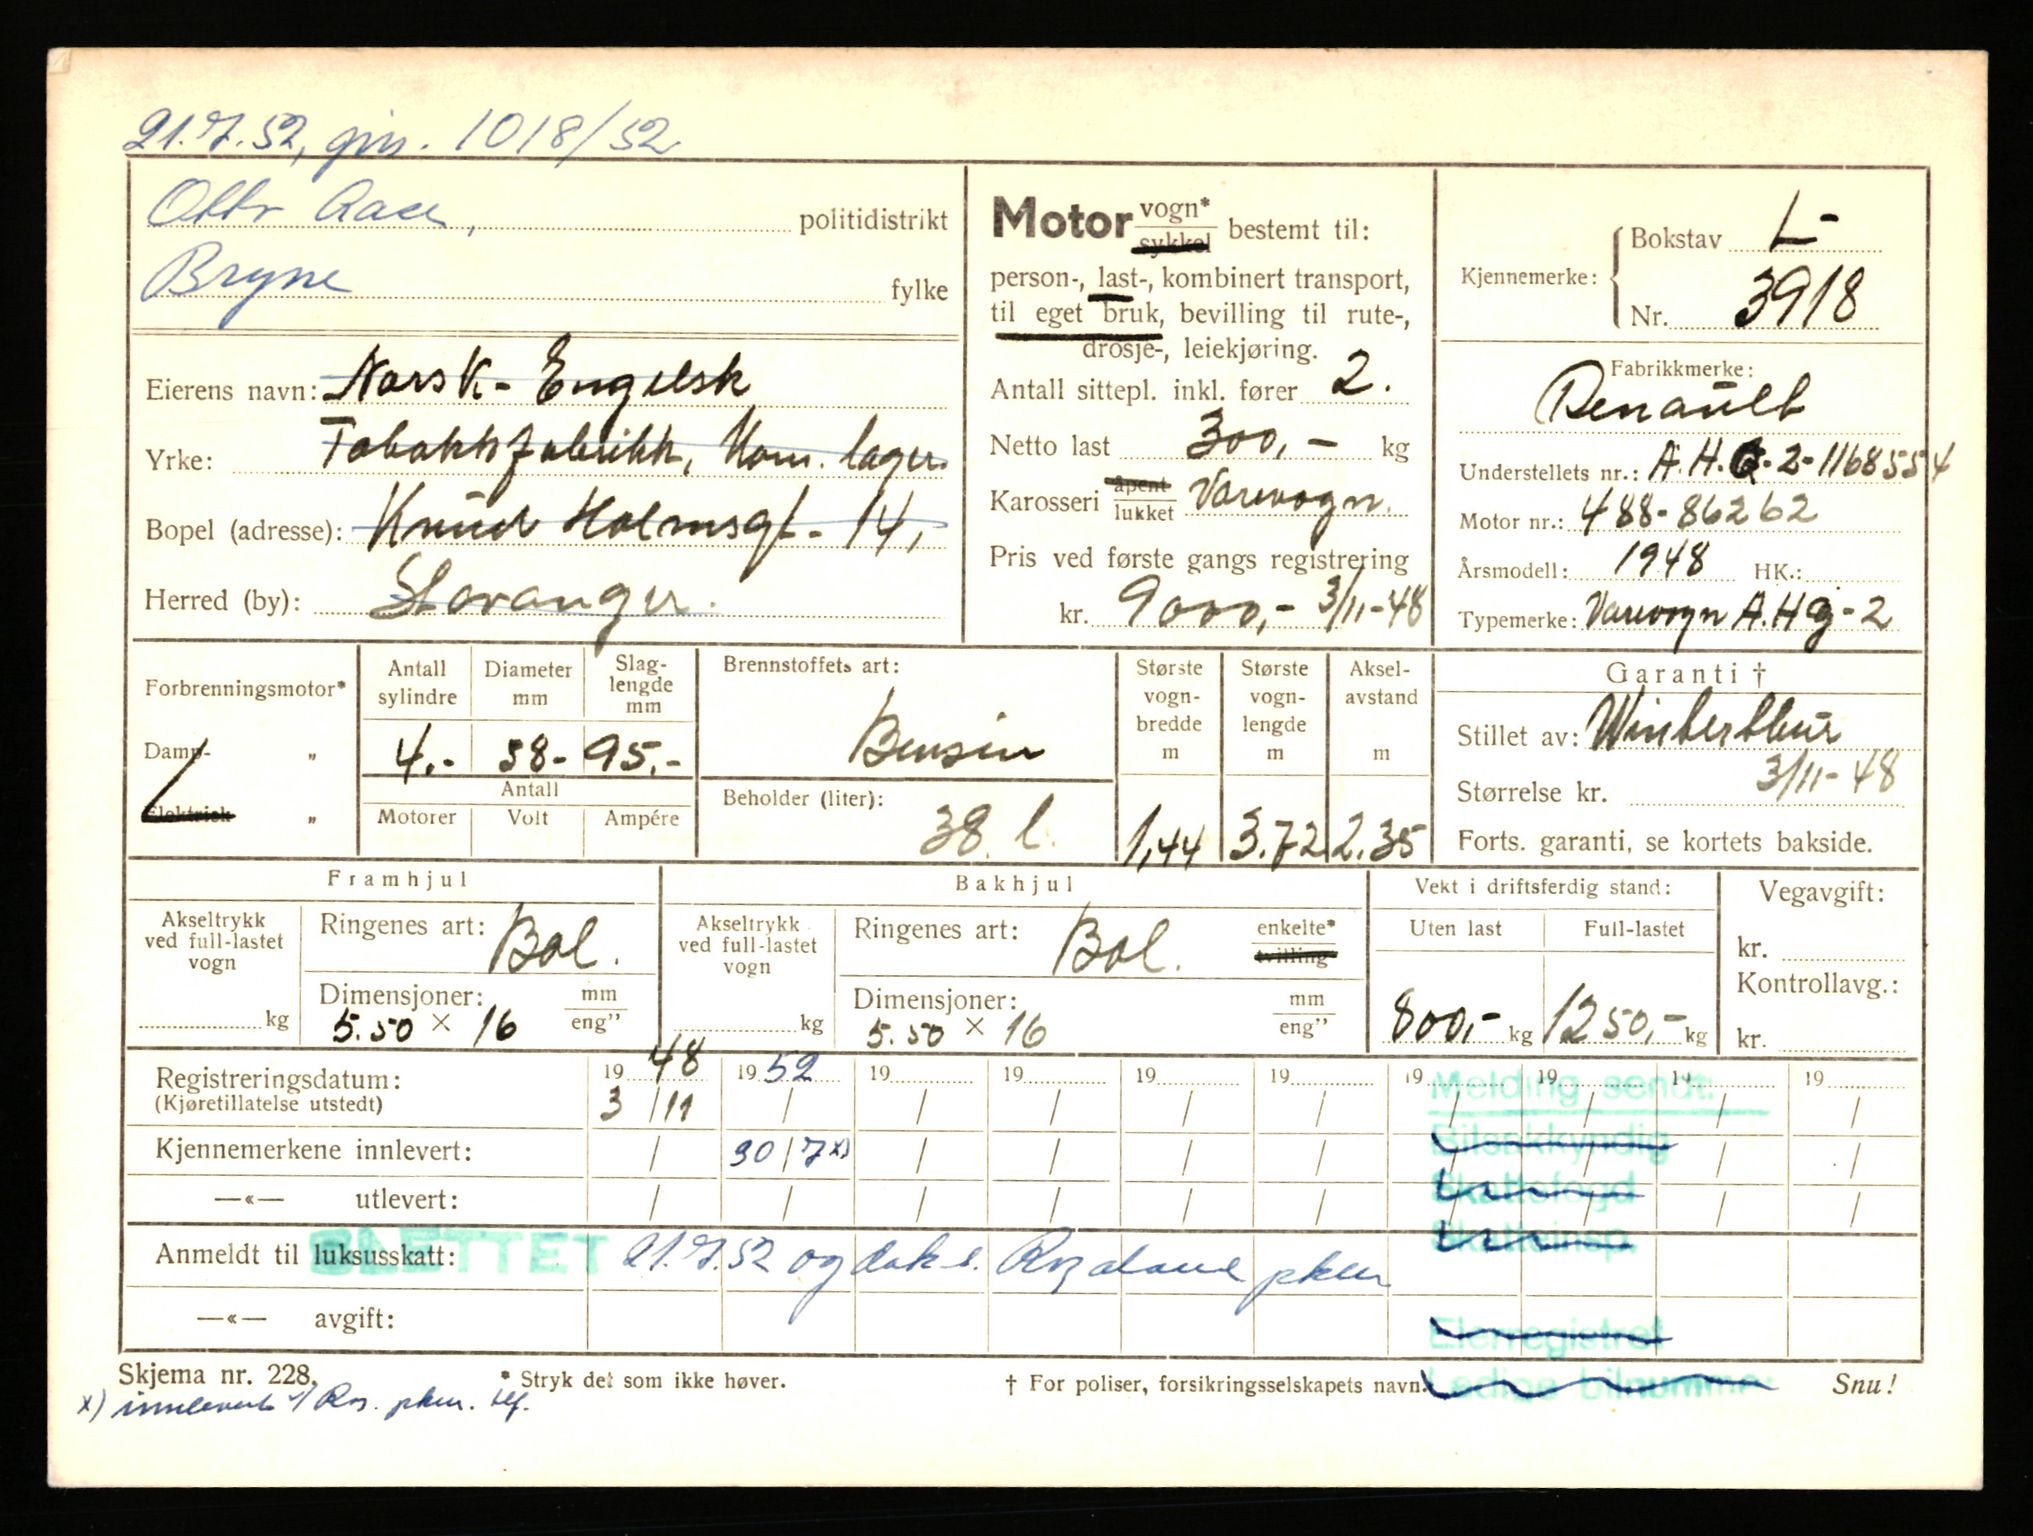 21.7.52, gjn. 1018/52
Otto Aase, politidistrikt
Bryne fylke
Eierens navn: Norsk-Engelsk
Yrke: Tobakksfabrikk, Kom. lager.
Bopel (adresse): Knud Holmsgt. 14,
Herred (by): Stavanger.
Motor vogn* sykkel bestemt til:
person-, last-, kombinert transport,
til eget bruk, bevilling til rute-,
drosje-, leiekjøring.
Antall sittepl. inkl. fører 2.
Netto last 300,- kg
Karosseri åpent lukket Varevogn.
Pris ved første gangs registrering
kr. 9000,- 3/11-48
Kjennemerke:
Bokstav L-
Nr. 3918
Fabrikkmerke:
Renault
Understellets nr.: A.H.G.2-1168554
Motor nr.: 488-86262
Årsmodell: 1948 HK.:
Typemerke: Varevogn A.H.G-2
Forbrenningsmotor*
Damp- „
Elektrisk „
Antall sylindre
Diameter mm
Slag-lengde mm
4.- 58- 95.-
Antall
Motorer Volt Ampére
Brennstoffets art:
Bensin
Beholder (liter):
38 l.
Største vogn-bredde m
1,44
Største vogn-lengde m
3.72
Aksel-avstand m
2.35
Garanti †
Stillet av: Winterthur
3/11-48
Størrelse kr.
Forts. garanti, se kortets bakside.
Framhjul
Akseltrykk ved full-lastet vogn
kg
Ringenes art: Bal.
Dimensjoner: mm eng”
5.50 × 16
Bakhjul
Akseltrykk ved full-lastet vogn
kg
Ringenes art: Bal. enkelte* tvilling
Dimensjoner: mm eng”
5.50 × 16
Vekt i driftsferdig stand:
Uten last Full-lastet
800,- kg 1250,- kg
Vegavgift:
kr.
Kontrollavg.:
kr.
Registreringsdatum: 1948 1952 19 19 19 19 19 19 19 19
(Kjøretillatelse utstedt) 3/11 / / / / / / / / /
Kjennemerkene innlevert: / 30/7 x) / / / / / / / /
—«— utlevert: / / / / / / / / / /
Melding sendt:
Bilsakkyndig
Skattefogd
Skatteinsp
Eierregistret
Ledige bilnumme:
SLETTET
Anmeldt til luksusskatt: 21.7.52 og dok s. Rogaland pkm
—«— avgift:
Skjema nr. 228.
* Stryk det som ikke høver.
† For poliser, forsikringsselskapets navn.
Snu!
x) innlevert v/ Rog. pkm.